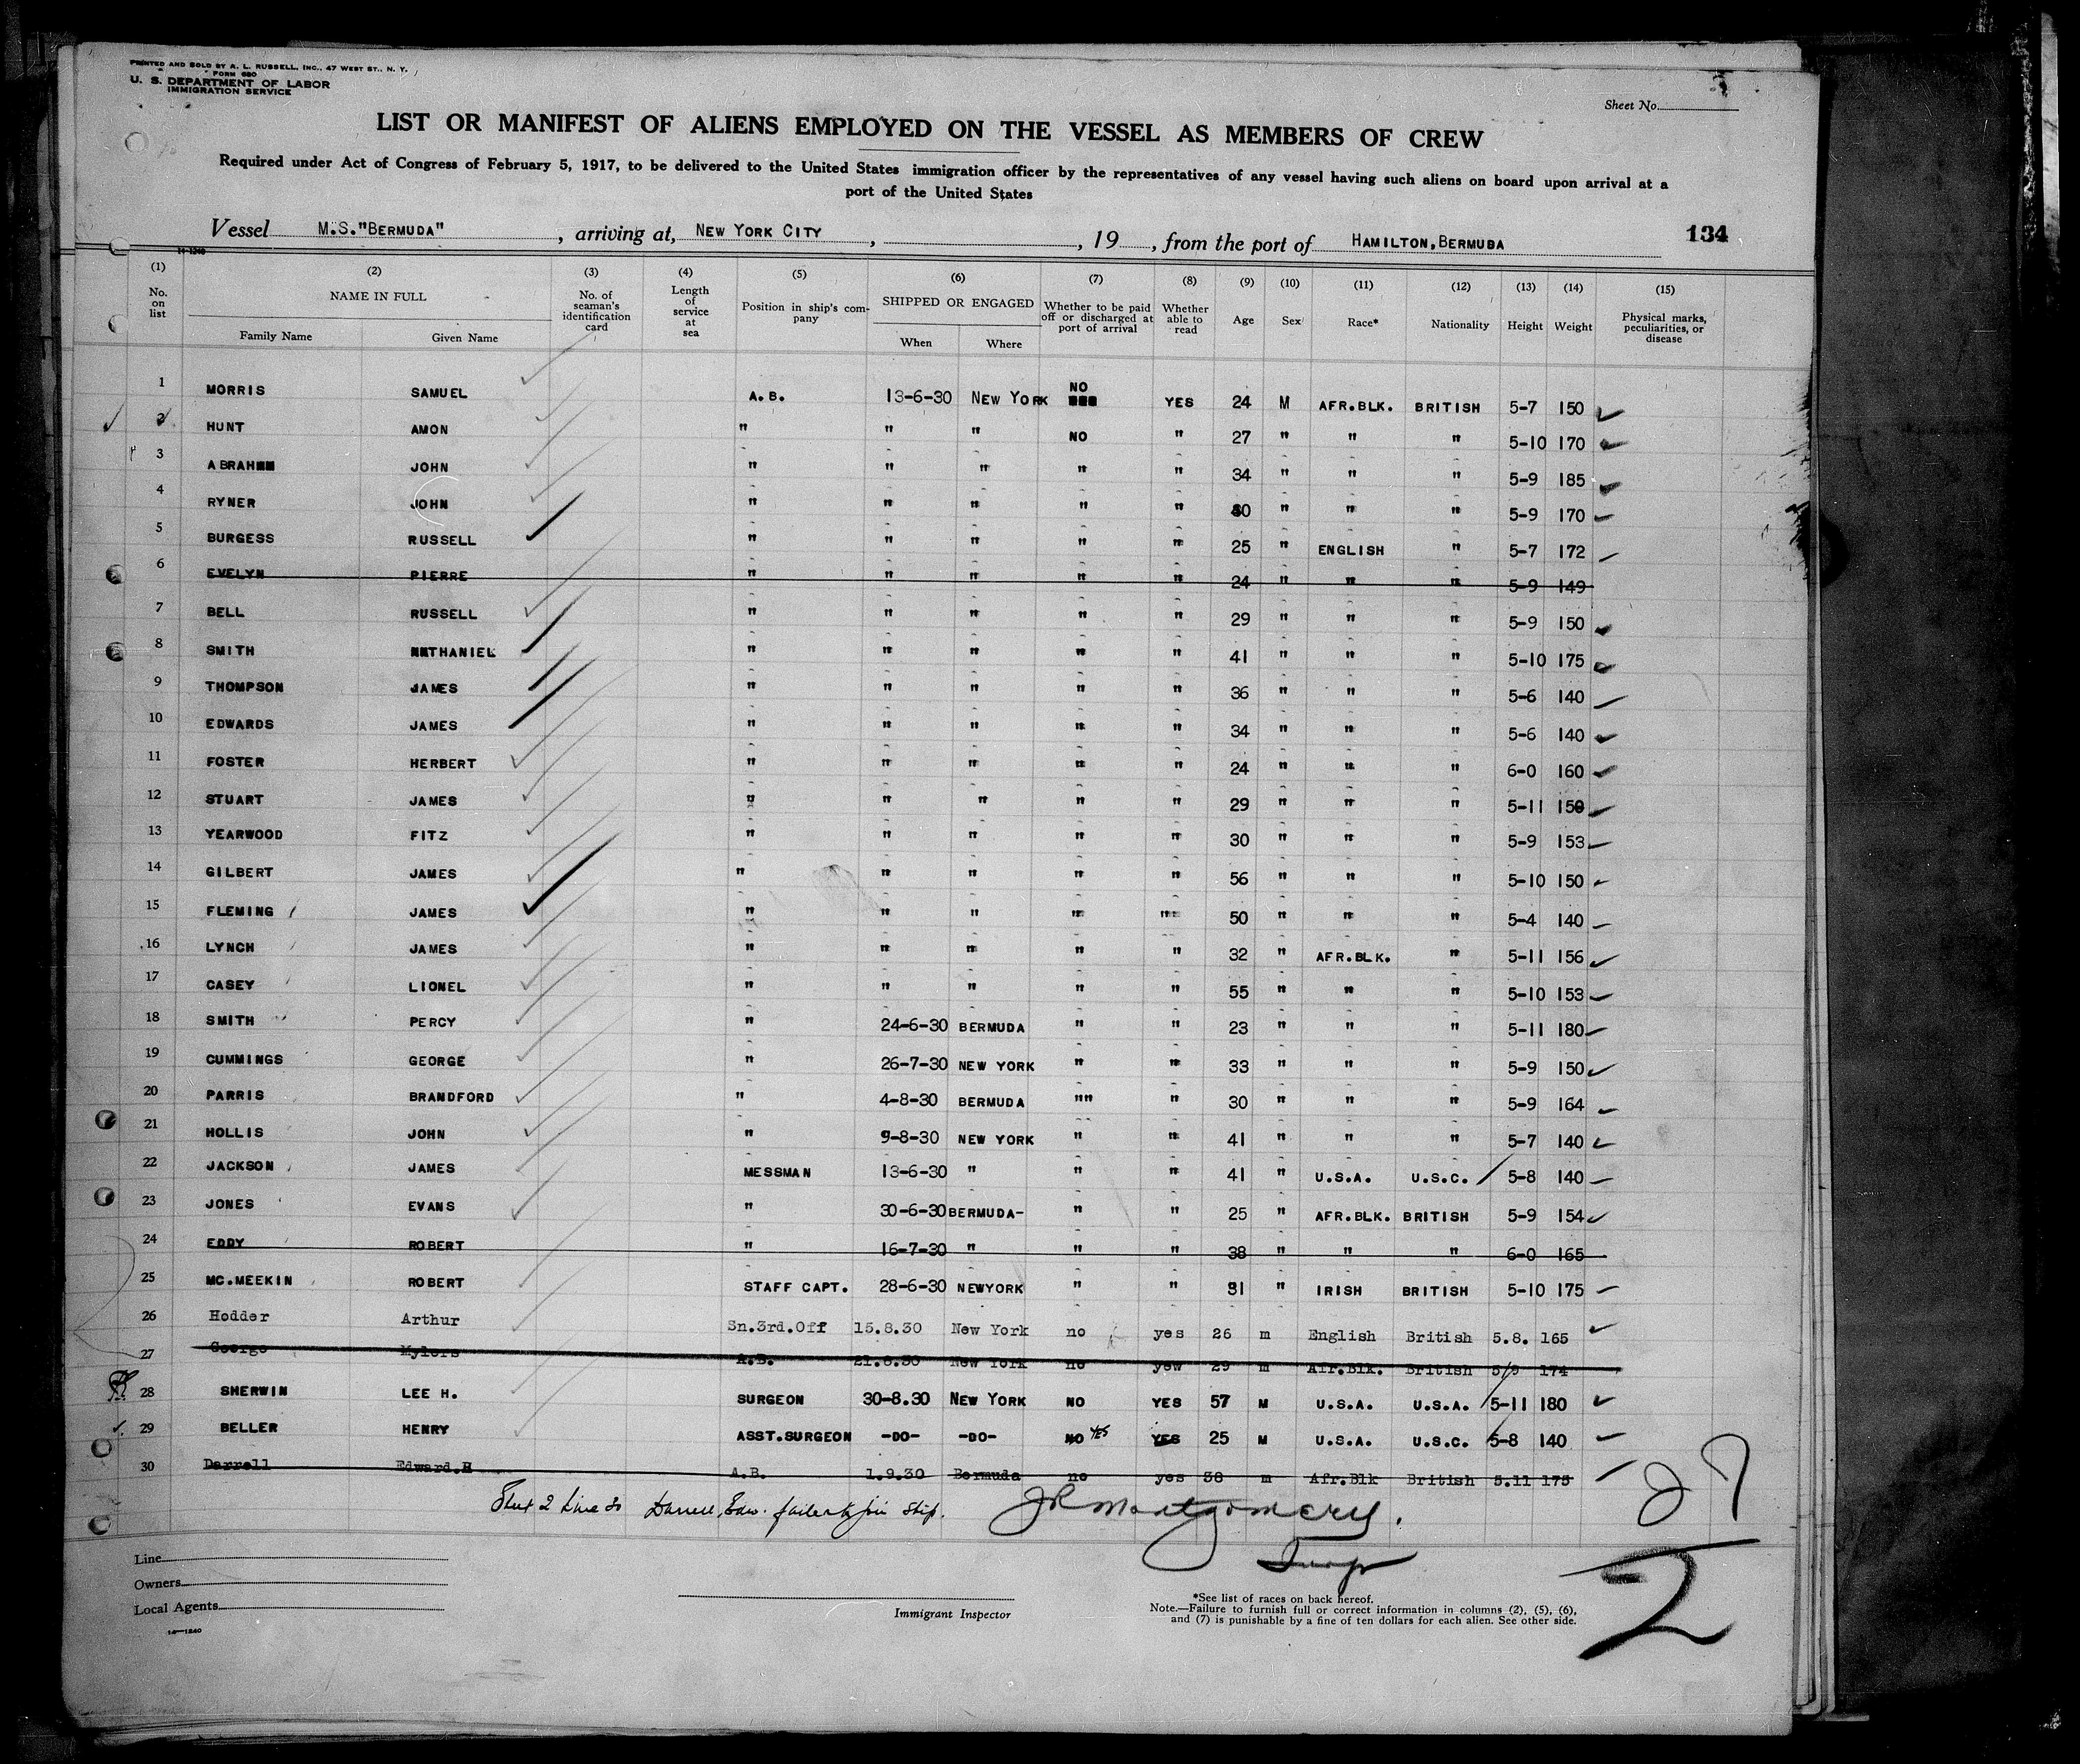 PRINTED AND SOLD BY A. L. RUSSELL, INC., 47 WEST ST., N. Y.
FORM 680
U. S. DEPARTMENT OF LABOR
IMMIGRATION SERVICE
Sheet No.
LIST OR MANIFEST OF ALIENS EMPLOYED ON THE VESSEL AS MEMBERS OF CREW
Required under Act of Congress of February 5, 1917, to be delivered to the United States immigration officer by the representatives of any vessel having such aliens on board upon arrival at a
port of the United States
Vessel M.S."BERMUDA" , arriving at, NEW YORK CITY , , 19 , from the port of HAMILTON, BERMUDA 134
14-1240
(1) (2) (3) (4) (5) (6) (7) (8) (9) (10) (11) (12) (13) (14) (15)
No. on list NAME IN FULL Family Name Given Name No. of seaman's identification card Length of service at sea Position in ship's company SHIPPED OR ENGAGED When Where Whether to be paid off or discharged at port of arrival Whether able to read Age Sex Race* Nationality Height Weight Physical marks, peculiarities, or disease
1 MORRIS SAMUEL A.B. 13-6-30 NEW YORK NO YES 24 M AFR.BLK. BRITISH 5-7 150
2 HUNT AMON " " " NO " 27 " " " 5-10 170
3 ABRAH JOHN " " " " " 34 " " " 5-9 185
4 RYNER JOHN " " " " " 0 " " " 5-9 170
5 BURGESS RUSSELL " " " " " 25 " ENGLISH " 5-7 172
6 EVELYN PIERRE " " " " " 24 " " " 5-9 149
7 BELL RUSSELL " " " " " 29 " " " 5-9 150
8 SMITH NATHANIEL " " " " " 41 " " " 5-10 175
9 THOMPSON JAMES " " " " " 36 " " " 5-6 140
10 EDWARDS JAMES " " " " " 34 " " " 5-6 140
11 FOSTER HERBERT " " " " " 24 " " " 6-0 160
12 STUART JAMES " " " " " 29 " " " 5-11 150
13 YEARWOOD FITZ " " " " " 30 " " " 5-9 153
14 GILBERT JAMES " " " " " 56 " " " 5-10 150
15 FLEMING JAMES " " " " " 50 " " " 5-4 140
16 LYNCH JAMES " " " " " 32 " AFR.BLK. " 5-11 156
17 CASEY LIONEL " " " " " 55 " " " 5-10 153
18 SMITH PERCY " 24-6-30 BERMUDA " " 23 " " " 5-11 180
19 CUMMINGS GEORGE " 26-7-30 NEW YORK " " 33 " " " 5-9 150
20 PARRIS BRANDFORD " 4-8-30 BERMUDA "" " 30 " " " 5-9 164
21 HOLLIS JOHN " 9-8-30 NEW YORK " " 41 " " " 5-7 140
22 JACKSON JAMES MESSMAN 13-6-30 " " " 41 " U.S.A. U.S.C. 5-8 140
23 JONES EVANS " 30-6-30 BERMUDA- " " 25 " AFR.BLK. BRITISH 5-9 154
24 EDDY ROBERT " 16-7-30 " " " 38 " " " 6-0 165
25 MC.MEEKIN ROBERT STAFF CAPT. 28-6-30 NEWYORK " " 31 " IRISH BRITISH 5-10 175
26 Hodder Arthur Sn.3rd.Off 15.8.30 New York no yes 26 m English British 5.8. 165
27 George Mylers A.B. 21.8.30 New York no yew 29 m Afr.Blk. British 5/9 174
28 SHERWIN LEE H. SURGEON 30-8.30 NEW YORK NO YES 57 M U.S.A. U.S.A. 5-11 180
29 BELLER HENRY ASST.SURGEON -DO- -DO- NO YES YES 25 M U.S.A. U.S.C. 5-8 140
30 Darrell Edward.H A.B. 1.9.30 Bermuda no yes 38 m Afr.Blk British 5.11 175
Sheet 2 Line 30 Darrell, Edw. failed to join ship. JR Montgomery.
27
2
Line
Owners
Local Agents
14-1240
Immigrant Inspector
*See list of races on back hereof.
Note.—Failure to furnish full or correct information in columns (2), (5), (6),
and (7) is punishable by a fine of ten dollars for each alien. See other side.